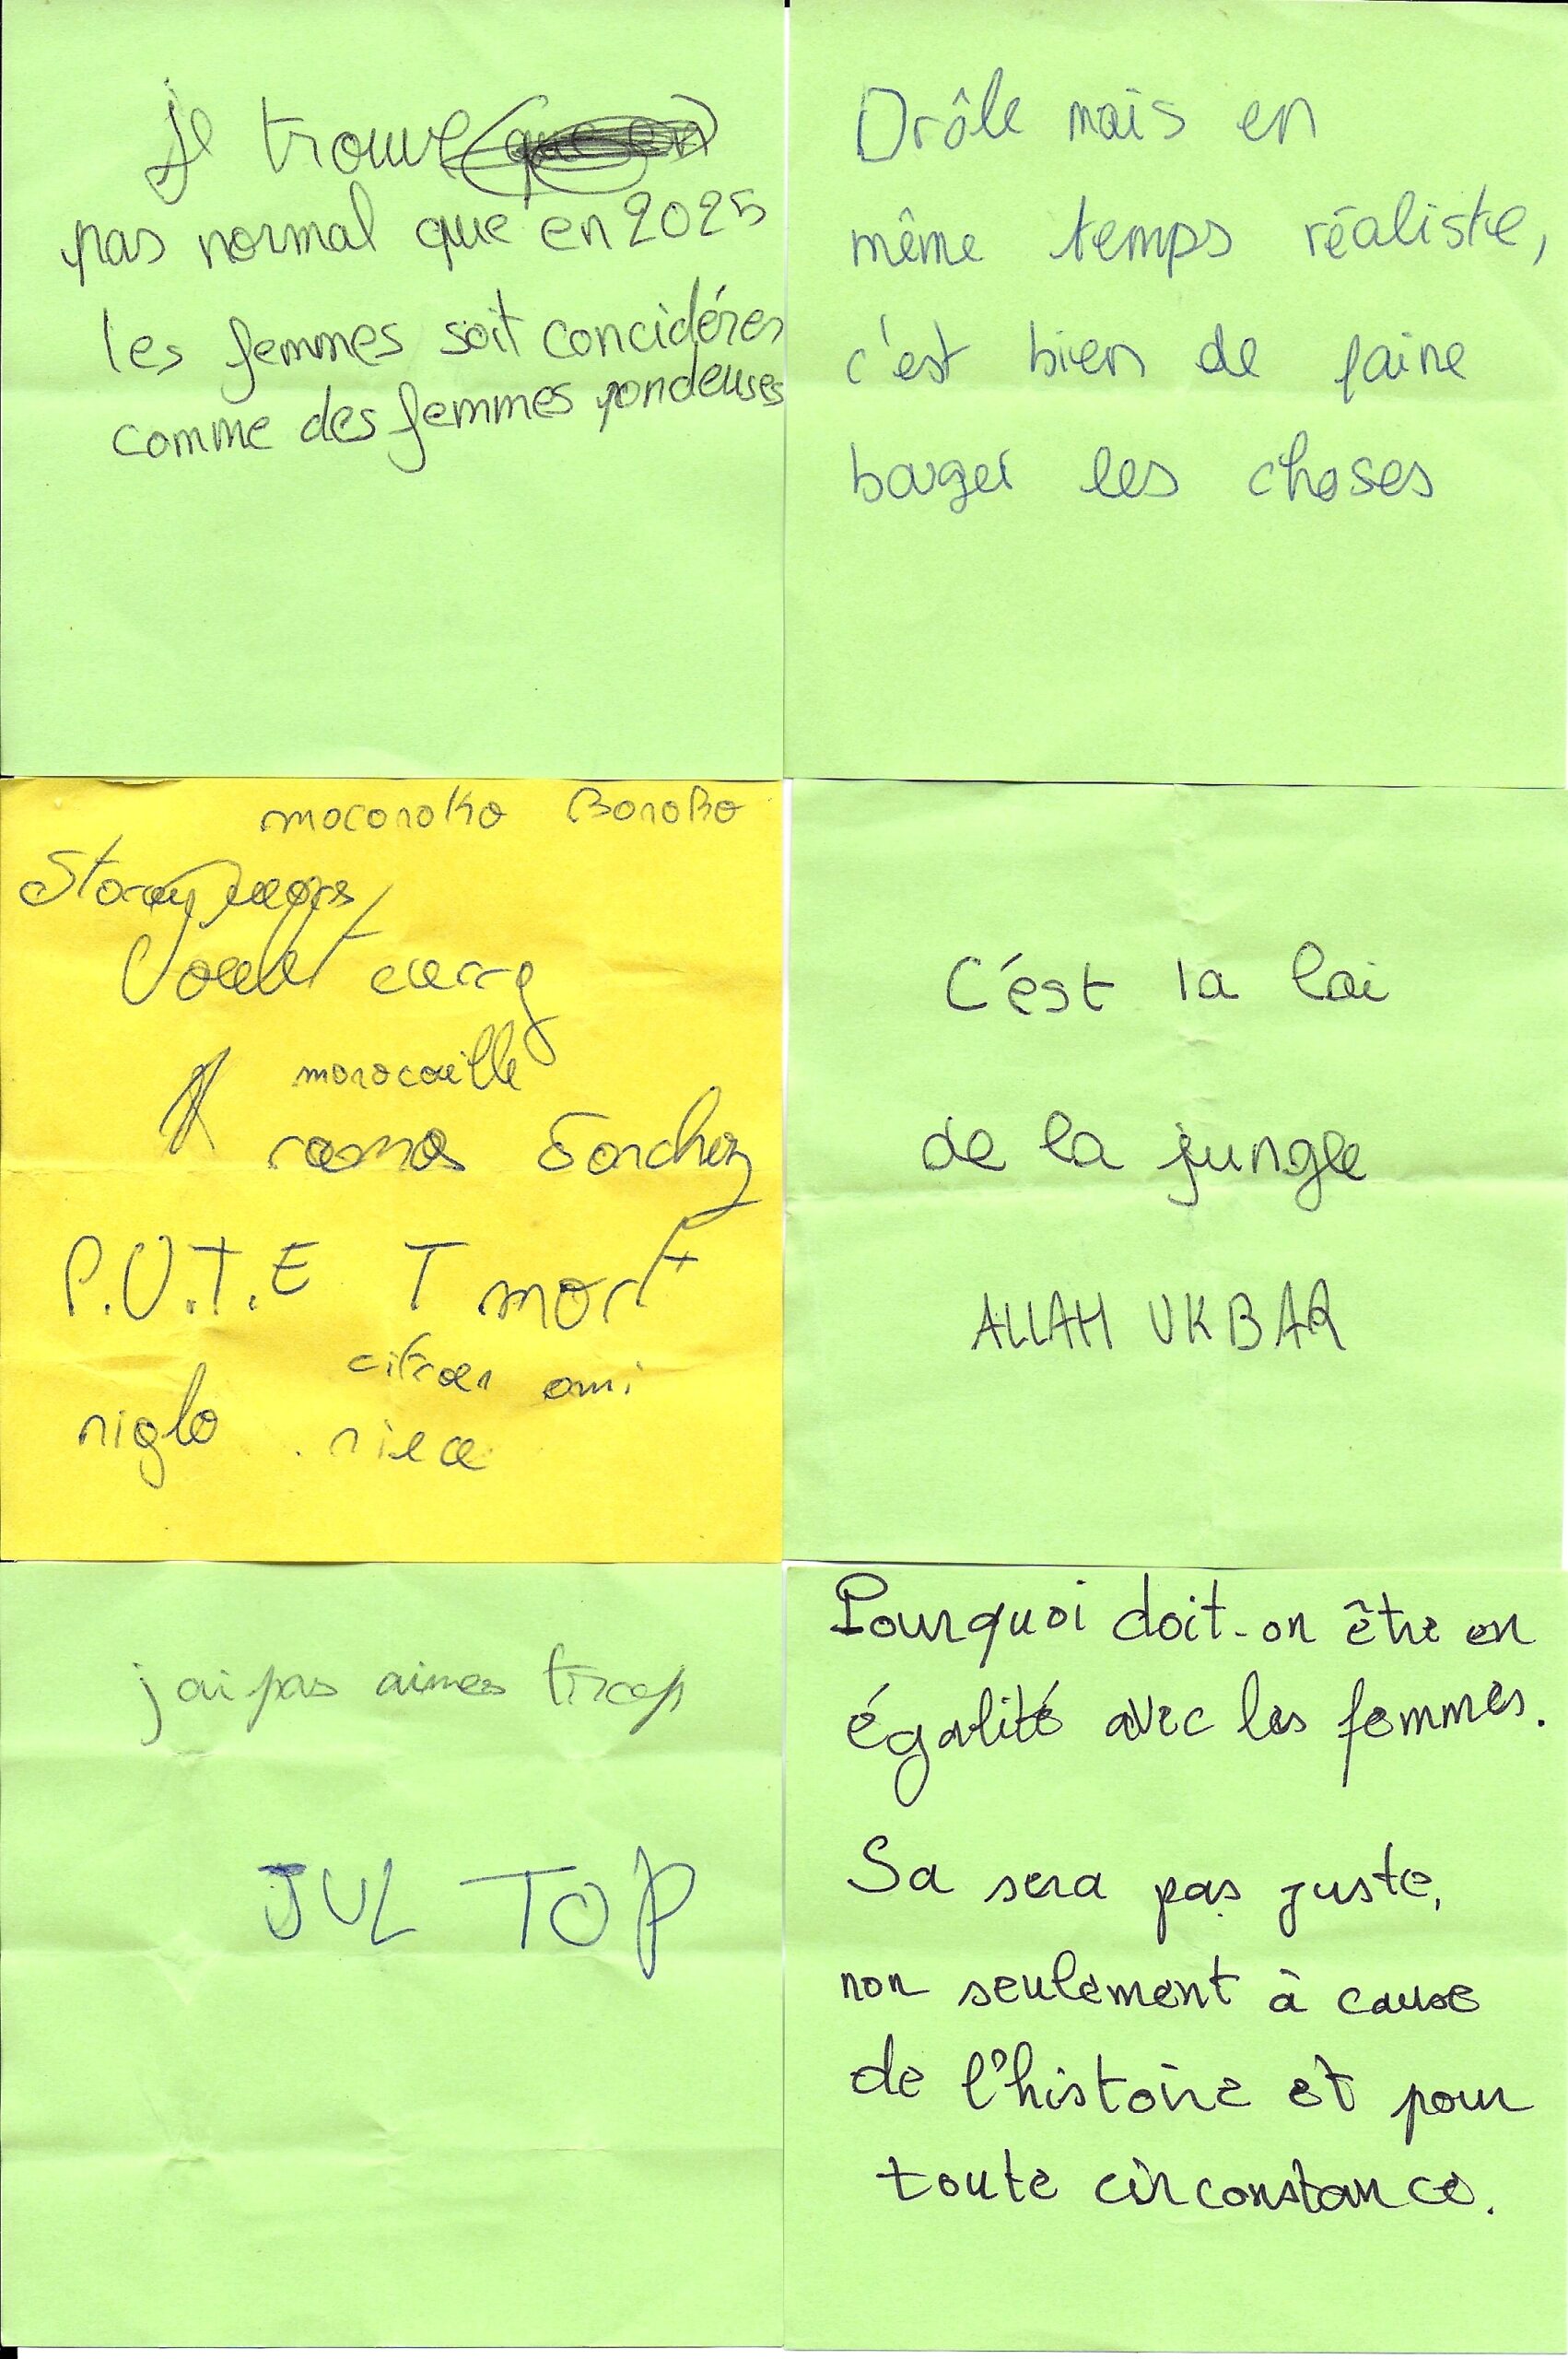 Je trouve
pas normal que en 2025
les femmes soit concidéres
comme des femmes pondeuses
Drôle mais en
même temps réaliste,
c'est bien de faire
bouger les choses
moconoko BonoBo
morocaille
ramos Sanchez
P.U.T.E T mort
citroen ami
niglo niece
C'est la loi
de la jungle
ALLAH UKBAR
j'ai pas aimes trop
JUL TOP
Pourquoi doit-on être en
égalité avec les femmes.
Sa sera pas juste,
non seulement à cause
de l'histoire et pour
toute circonstance.